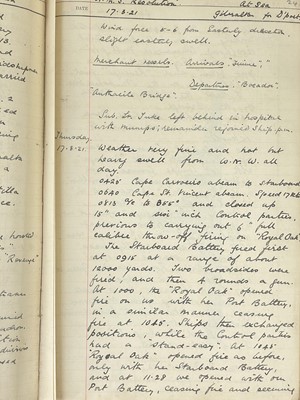 H.M.S. Resolution At Sea
DATE 17-3-21 Gibraltar for D'port
Wind force 5-6 from Easterly direction
slight easterly swell.
Merchant vessels. Arrivals
Departures
Sub. Lt. left behind in hospital
with mumps; remainder rejoined ship p.m.
Thursday
Weather very fine and hot but
17-3-21
heavy swell from W.N.W. all
day.
0425 Cape abeam to Starboard
0640 Cape St. Vincent abeam. Speed 17 Kts
0813 c/c to and closed up
15" and 6 inch Control parties,
previous to carrying out 6" full
calibre throw-off firing on "Royal Oak"
The Starboard Battery fired first
at 0915 at a range of about
12000 yards. Two broadsides were
fired, and then 4 rounds a gun.
At 1000, the "Royal Oak" opened
fire on us with her Port Battery,
in a similar manner, ceasing
fire at 1025. Ships then exchanged
positions, while the Control parties
had a "stand-easy". At 1045
"Royal Oak" opened fire as before,
only with her Starboard Battery,
and at 11.28 we opened with our
Port Battery, ceasing fire and securing